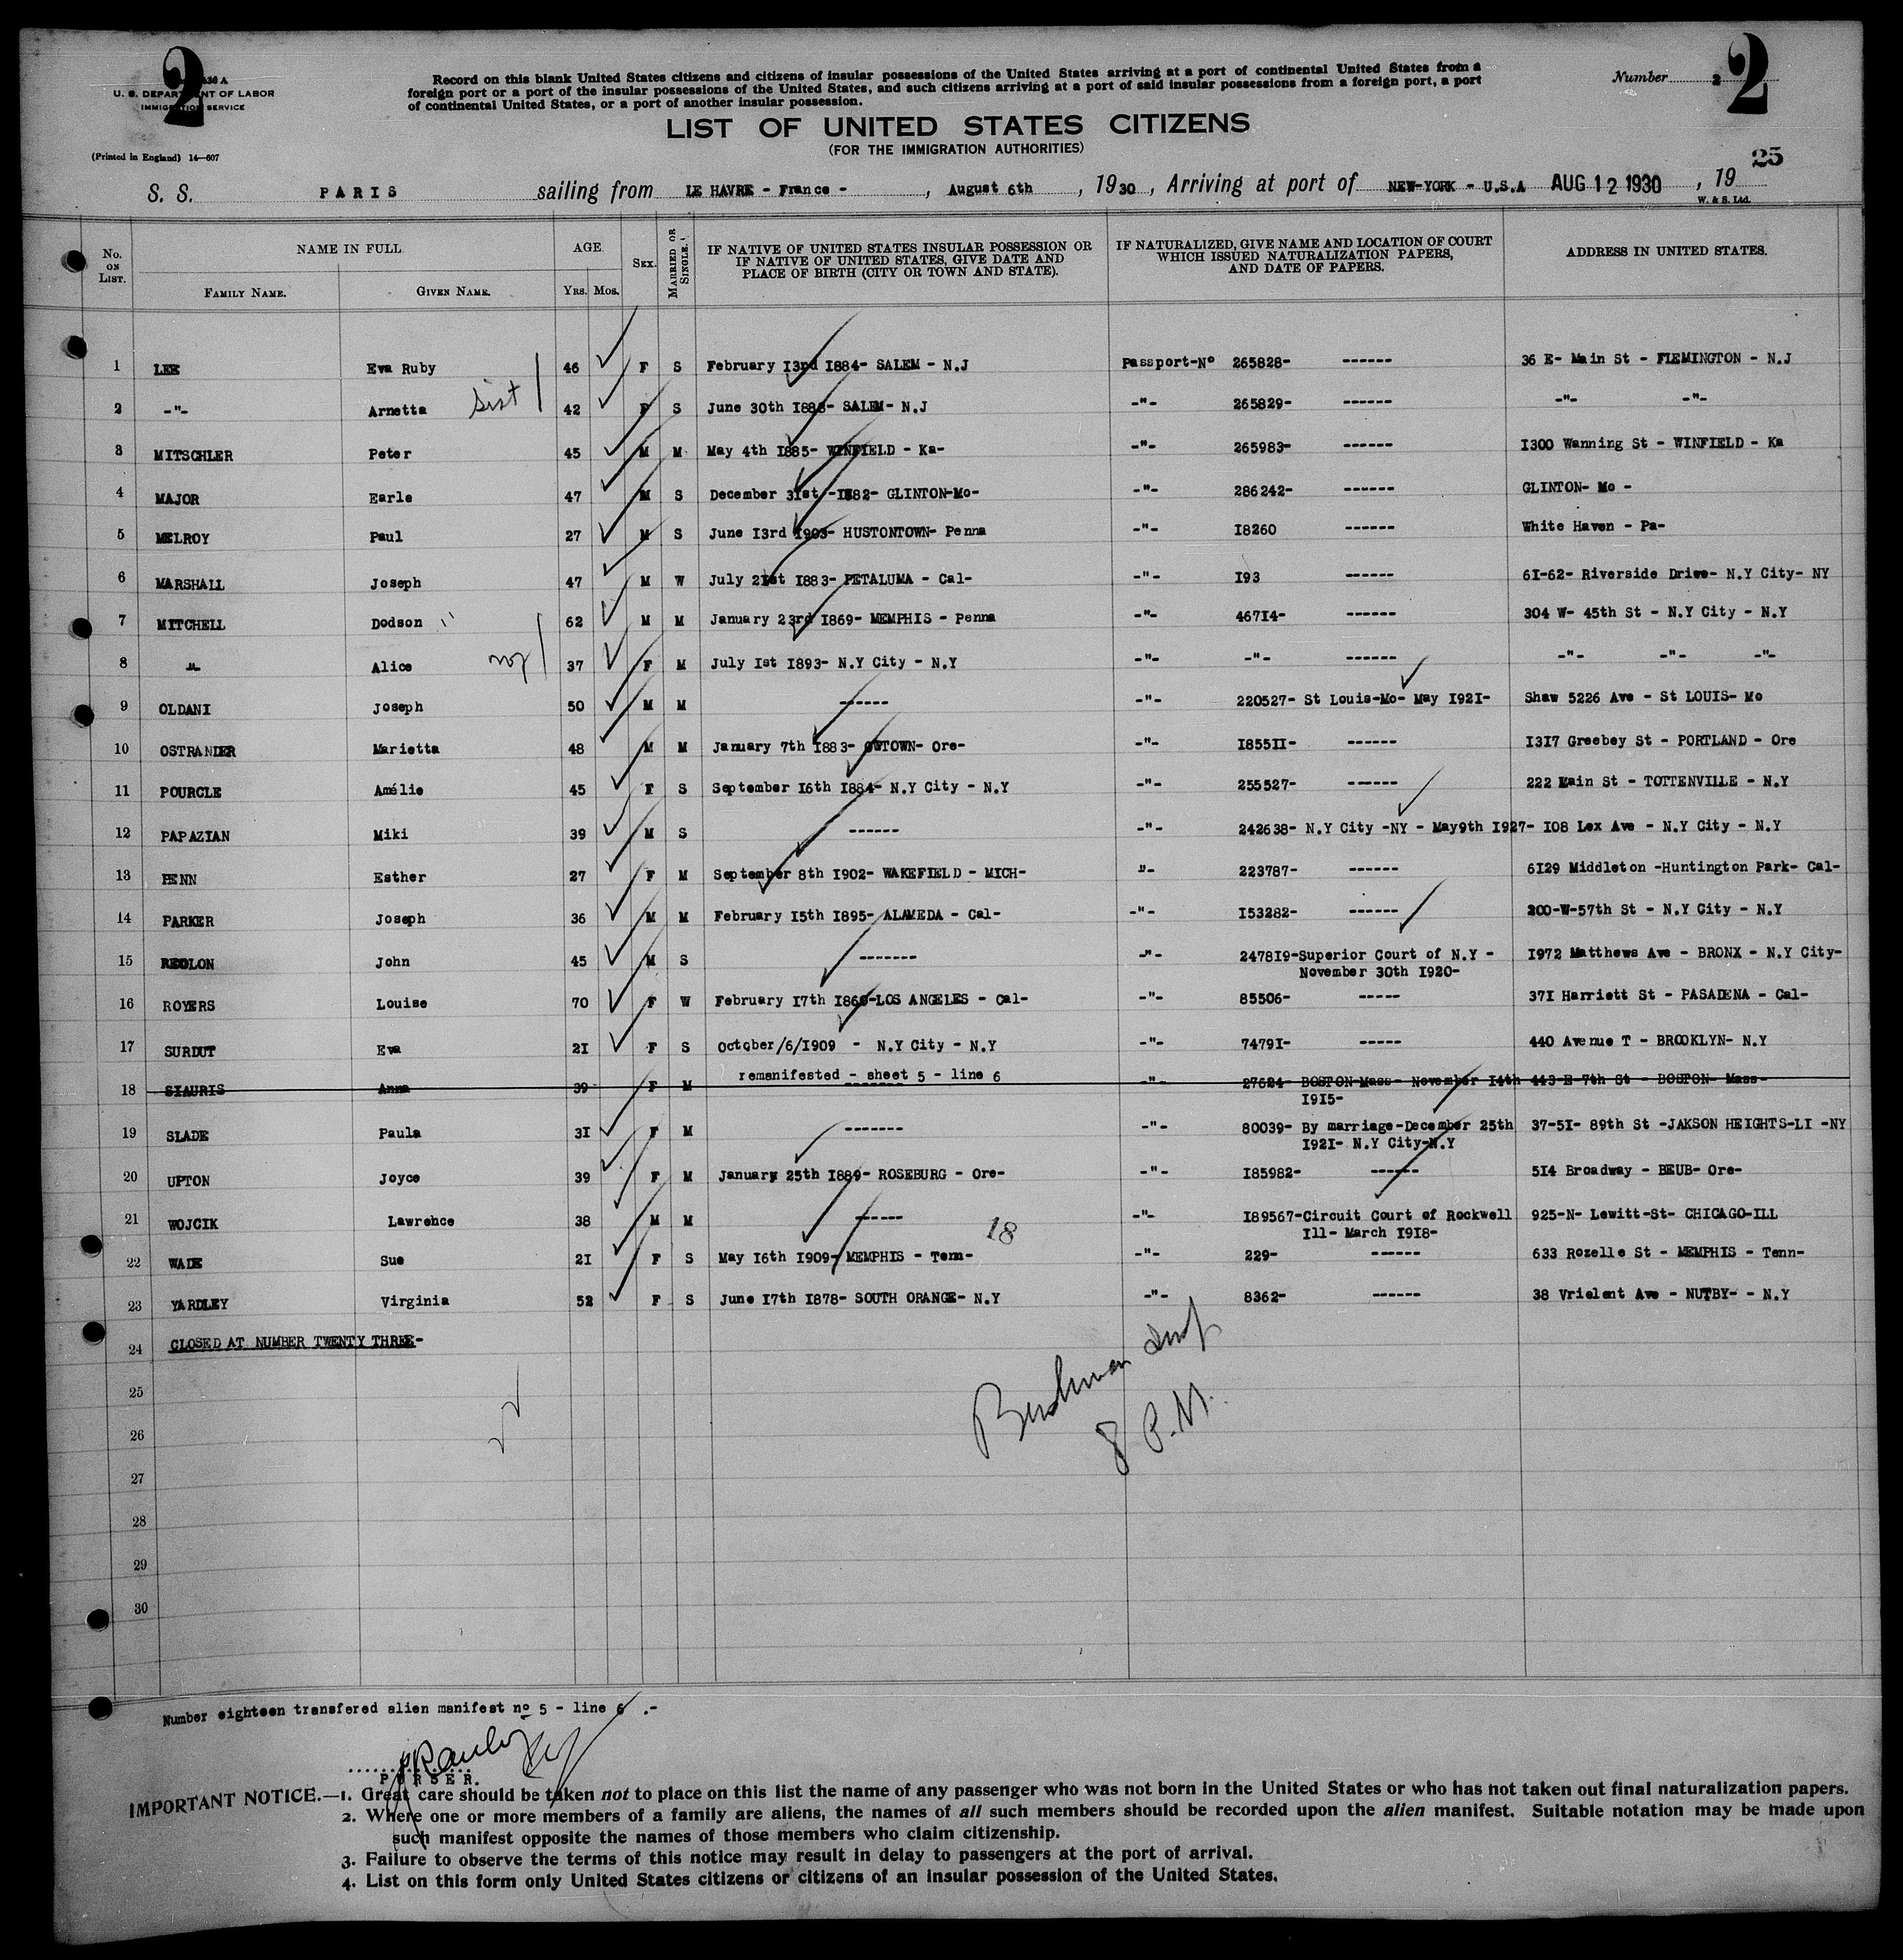 2
U. S. DEPARTMENT OF LABOR
IMMIGRATION SERVICE
(Printed in England) 14—607
Record on this blank United States citizens and citizens of insular possessions of the United States arriving at a port of continental United States from a
foreign port or a port of the insular possessions of the United States, and such citizens arriving at a port of said insular possessions from a foreign port, a port
of continental United States, or a port of another insular possession.
Number 2
2
LIST OF UNITED STATES CITIZENS
(FOR THE IMMIGRATION AUTHORITIES)
25
S. S. PARIS sailing from LE HAVRE - France - , August 6th , 1930 , Arriving at port of NEW-YORK - U.S.A AUG 12 1930 , 19
W. & S. Ltd.
No. ON LIST. NAME IN FULL FAMILY NAME. GIVEN NAME. AGE Yrs. Mos. SEX. MARRIED OR SINGLE. IF NATIVE OF UNITED STATES INSULAR POSSESSION OR IF NATIVE OF UNITED STATES, GIVE DATE AND PLACE OF BIRTH (CITY OR TOWN AND STATE). IF NATURALIZED, GIVE NAME AND LOCATION OF COURT WHICH ISSUED NATURALIZATION PAPERS, AND DATE OF PAPERS. ADDRESS IN UNITED STATES.
1 LEE Eva Ruby 46 F S February I3rd I884- SALEM - N.J Passport-Nº 265828- ------ 36 E- Main St - FLEMINGTON - N.J
2 -"- Arnetta Sist 42 F S June 30th I888- SALEM- N.J -"- 265829- ------ -"- -"-
3 MITSCHLER Peter 45 M M May 4th I885- WINFIELD - Ka- -"- 265983- ------ I300 Wanning St - WINFIELD - Ka
4 MAJOR Earle 47 M S December 3Ist -I882- GLINTON-Mo- -"- 286242- ------ GLINTON- Mo -
5 MELROY Paul 27 M S June I3rd I903- HUSTONTOWN- Penna -"- I8260 ------ White Haven - Pa-
6 MARSHALL Joseph 47 M W July 2Ist I883- PETALUMA - Cal- -"- I93 ------ 6I-62- Riverside Drive- N.Y City- NY
7 MITCHELL Dodson 62 M M January 23rd I869- MEMPHIS - Penna -"- 467I4- ------ 304 W- 45th St - N.Y City - N.Y
8 -"- Alice 37 F M July Ist I893- N.Y City - N.Y -"- -"- ------ -"- -"- -"-
9 OLDANI Joseph 50 M M ------ -"- 220527- St Louis-Mo- May I92I- Shaw 5226 Ave - St LOUIS- Mo
10 OSTRANDER Marietta 48 M M January 7th I883- OWTOWN- Ore- -"- I855II- ------ I3I7 Greebey St - PORTLAND - Ore
11 POURCLE Amélie 45 F S September I6th I884- N.Y City - N.Y -"- 255527- ------ 222 Main St - TOTTENVILLE - N.Y
12 PAPAZIAN Miki 39 M S ------ -"- 242638- N.Y City -NY - May9th I927- I08 Lex Ave - N.Y City - N.Y
13 PENN Esther 27 F M September 8th I902- WAKEFIELD - MICH- "- 223787- ------ 6I29 Middleton -Huntington Park- Cal-
14 PARKER Joseph 36 M M February I5th I895- ALAMEDA - Cal- -"- I53282- ------ 200-W-57th St - N.Y City - N.Y
15 REOLON John 45 M S ------- -"- 2478I9-Superior Court of N.Y - I972 Matthews Ave - BRONX - N.Y City-
November 30th I920-
16 ROYERS Louise 70 F W February I7th I860-LOS ANGELES - Cal- -"- 85506- ----- 37I Harriett St - PASADENA - Cal-
17 SURDUT Eva 2I F S October/6/I909 - N.Y City - N.Y -"- 7479I- ----- 440 Avenue T - BROOKLYN- N.Y
remanifested - sheet 5 - line 6
18 SIAURIS Anna 39 F M ------ -"- 27624- BOSTON-Mass- November I4th 443-E-7th St - BOSTON- Mass-
I9I5-
19 SLADE Paula 3I F M ------- -"- 80039- By marriage-December 25th 37-5I- 89th St -JAKSON HEIGHTS-LI -NY
I92I- N.Y City-N.Y
20 UPTON Joyce 39 F M January 25th I889- ROSEBURG - Ore- -"- I85982- ------ 5I4 Broadway - BEUB- Ore-
21 WOJCIK Lawrence 38 M M ------ -"- I89567-Circuit Court of Rockwell 925-N- Lewitt-St- CHICAGO-ILL
18 Ill- March I9I8-
22 WADE Sue 2I F S May I6th I909- MEMPHIS - Tenn- -"- 229- ------ 633 Rozelle St - MEMPHIS - Tenn-
23 YARDLEY Virginia 52 F S June I7th I878- SOUTH ORANGE- N.Y -"- 8362- ------ 38 Vrielent Ave - NUTBY- - N.Y
24 CLOSED AT NUMBER TWENTY THREE-
25
26
8 P.M.
27
28
29
30
Number eighteen transfered alien manifest nº 5 - line 6 .-
PURSER.
IMPORTANT NOTICE.—1. Great care should be taken not to place on this list the name of any passenger who was not born in the United States or who has not taken out final naturalization papers.
2. Where one or more members of a family are aliens, the names of all such members should be recorded upon the alien manifest. Suitable notation may be made upon
such manifest opposite the names of those members who claim citizenship.
3. Failure to observe the terms of this notice may result in delay to passengers at the port of arrival.
4. List on this form only United States citizens or citizens of an insular possession of the United States.